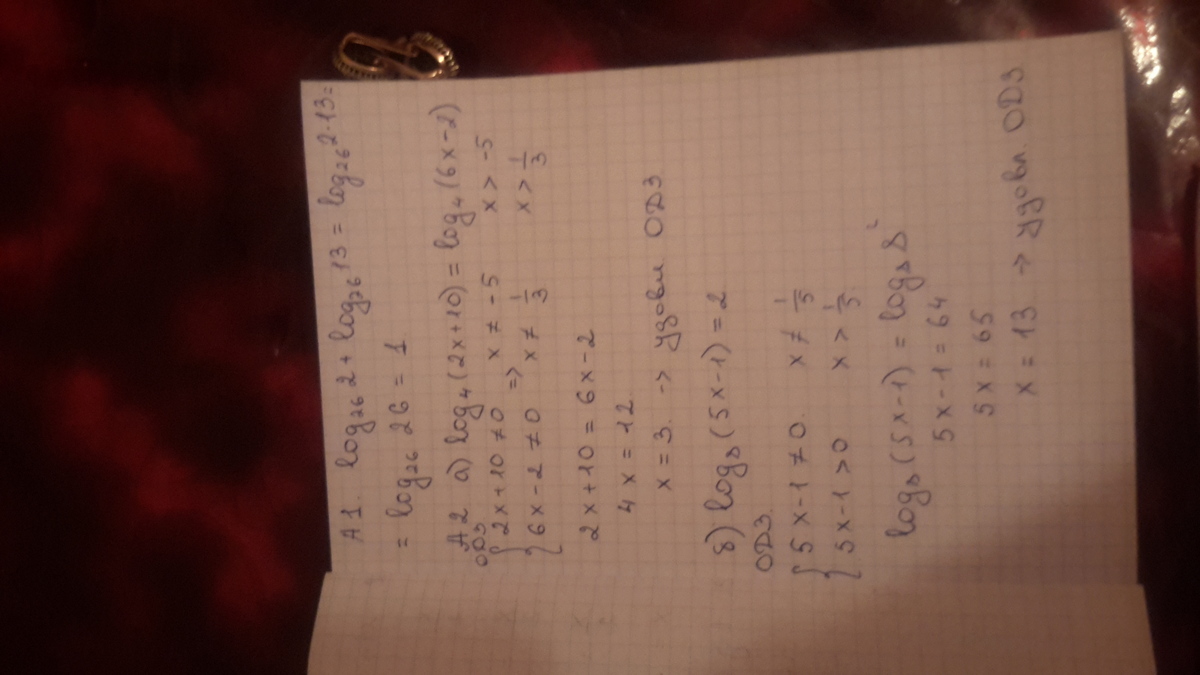 А1. log₂₆2 + log₂₆13 = log₂₆2·13 =
= log₂₆ 26 = 1
А2 а) log₄(2x+10) = log₄(6x-2)
ОДЗ
{ 2x+10 ≠ 0 => x ≠ -5 x > -5
{ 6x-2 ≠ 0 x ≠ 1/3 x > 1/3
2x+10 = 6x-2
4x = 12
x = 3. -> удовл ОДЗ
б) log₈(5x-1) = 2
ОДЗ.
{ 5x-1 ≠ 0. x ≠ 1/5
{ 5x-1 > 0 x > 1/5.
log₈(5x-1) = log₈8²
5x-1 = 64
5x = 65
x = 13 -> удовл. ОДЗ